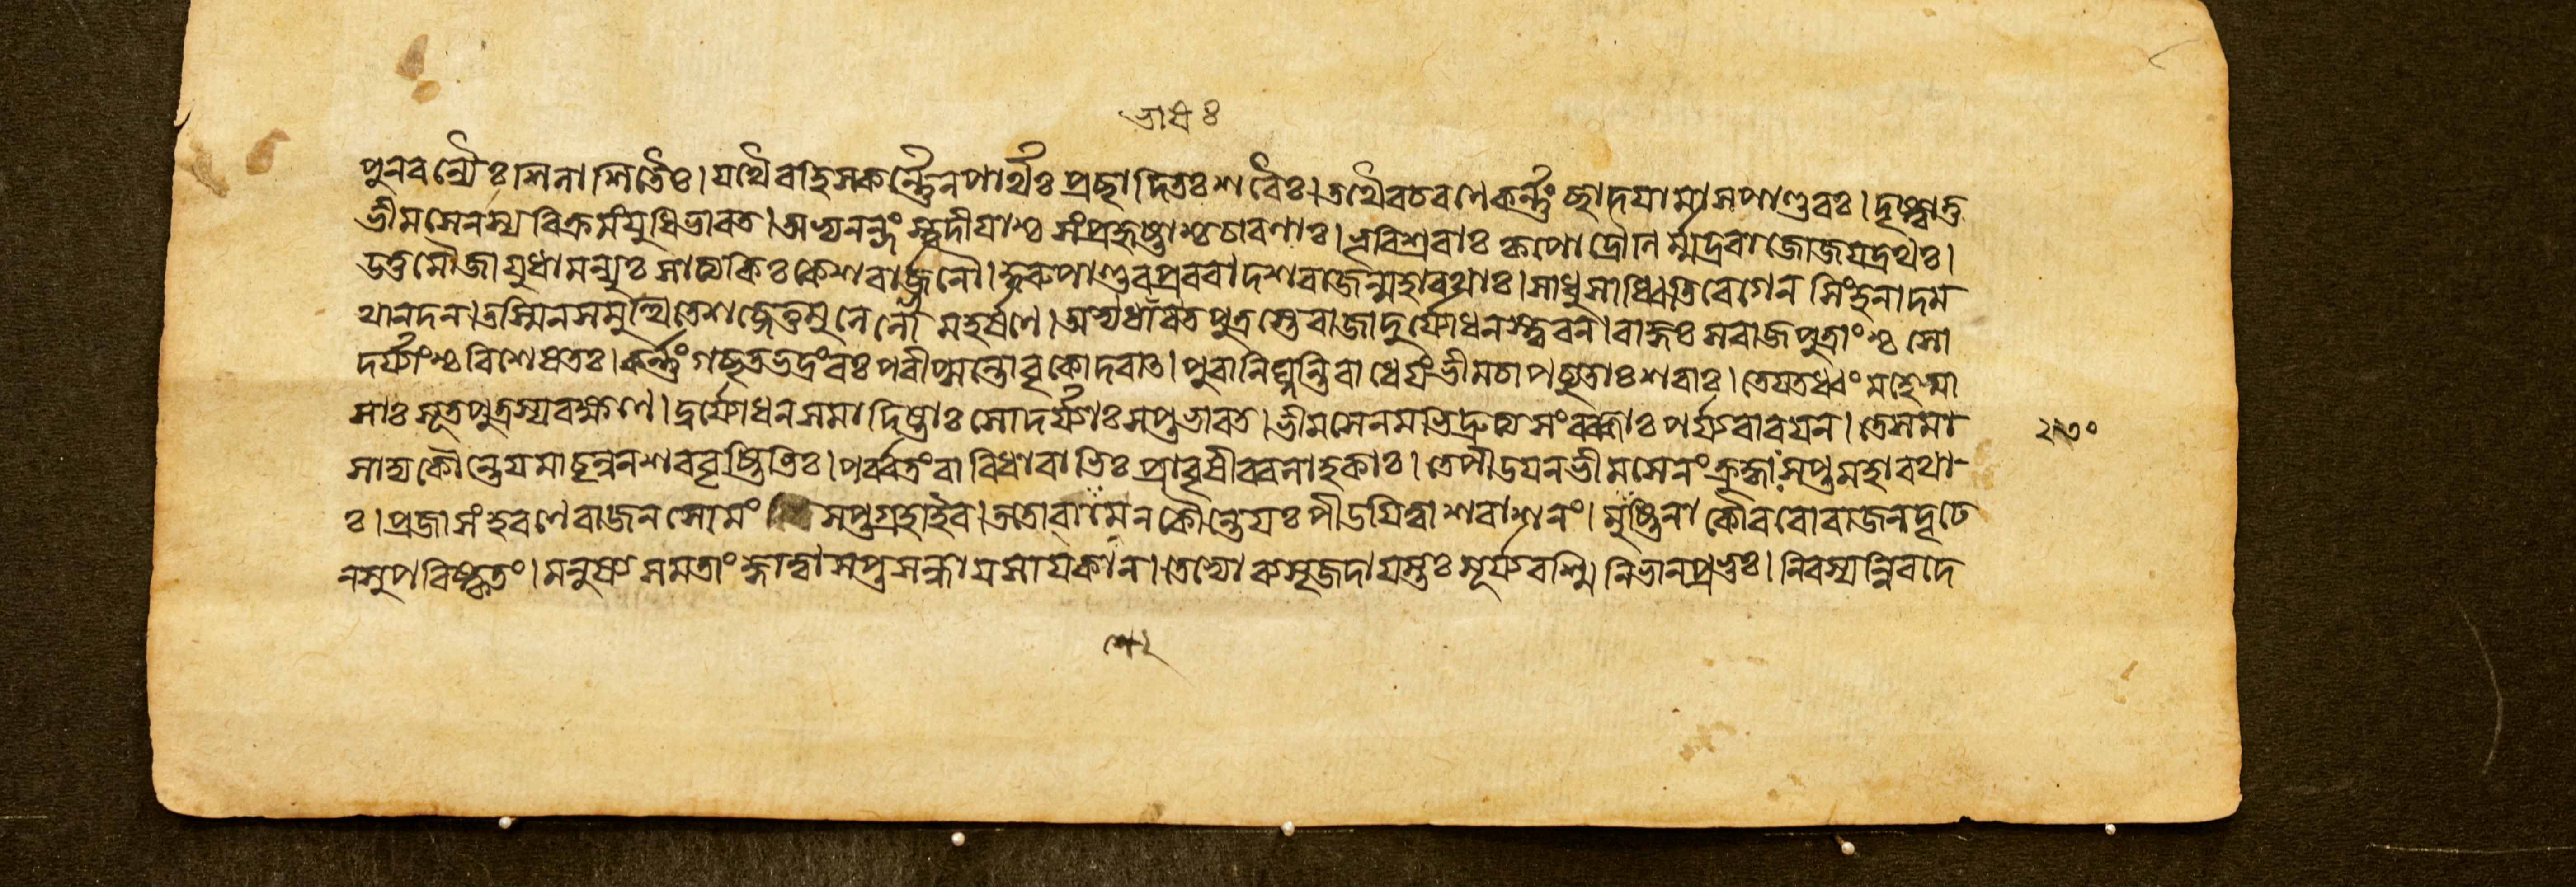 পুনরন্যৈঃ শিলাশিতৈঃ। যথৈব হি স কর্ণ্ণেন পার্থঃ প্রছাদিতঃ শরৈঃ। তথৈব চ রণে কর্ণ্ণং ছাদয়ামাস পাণ্ডবঃ। দৃষ্ট্বা তু
ভীমসেনস্য বিক্রমং যুধি ভারত। অভ্যনন্দং স্ত্বদীয়াশ্চ সংপ্রহৃষ্টাশ্চ চারণাঃ। ভূরিশ্রবাঃ কৃপো দ্রৌণির্ম্মদ্ররাজো জয়দ্রথঃ।
উত্তমৌজা যুধামন্যুঃ সাত্যকিঃ কেশবার্জ্জুনৌ। কুরুপাণ্ডবপ্রবরা দশ রাজন্মহারথাঃ। সাধু সাধ্বিতি বেগেন সিংহনাদম
থানদন। তস্মিন সমুত্থিতে শব্দে তুমুলে লোমহর্ষণে। অভ্যধাবত পুত্রস্তে রাজা দুর্যোধনস্ত্বরন। রাজ্ঞঃ স রাজপুত্রাংশ্চ সো
দর্য্যাংশ্চ বিশেষতঃ। কর্ণ্ণং গচ্ছত ভদ্রং বঃ পরীপ্সন্তো বৃকোদরাত। পুরা নিঘ্নন্তি রাধেয়ং ভীমচাপচ্যুতাঃ শরাঃ। তে যতধ্বং মহেষ্বা
সাঃ সূতপুত্রস্য রক্ষণে। দুর্যোধনসমাদিষ্টাঃ সোদর্য্যাঃ সপ্ত ভারত। ভীমসেনমভিদ্রুত্য সংরব্ধাঃ পর্য্যবারয়ন। তে সমা
সাদ্য কৌন্তেয়মাবৃন্বন শরবৃষ্টিভিঃ। পর্ব্বতং বারিধারাভিঃ প্রাবৃষীব বলাহকাঃ। তে পীডয়ন ভীমসেনং ক্রুদ্ধাঃ সপ্ত মহারথা
ঃ। প্রজাসংহরণে রাজন সোমং সপ্ত গ্রহা ইব। ততো বামেন কৌন্তেয়ঃ পীডয়িত্বা শরাশনং। মুষ্টিনা কৌরবো রাজন দৃঢে
ন সুপরিষ্কৃতং। মনুষ্যসমতাং জ্ঞাত্বা সপ্ত সন্ধায় সায়কান। তেভ্যো ব্যসৃজদায়স্তঃ সূর্য্যরশ্মিনিভান প্রভুঃ। নিরস্যন্নিব দে